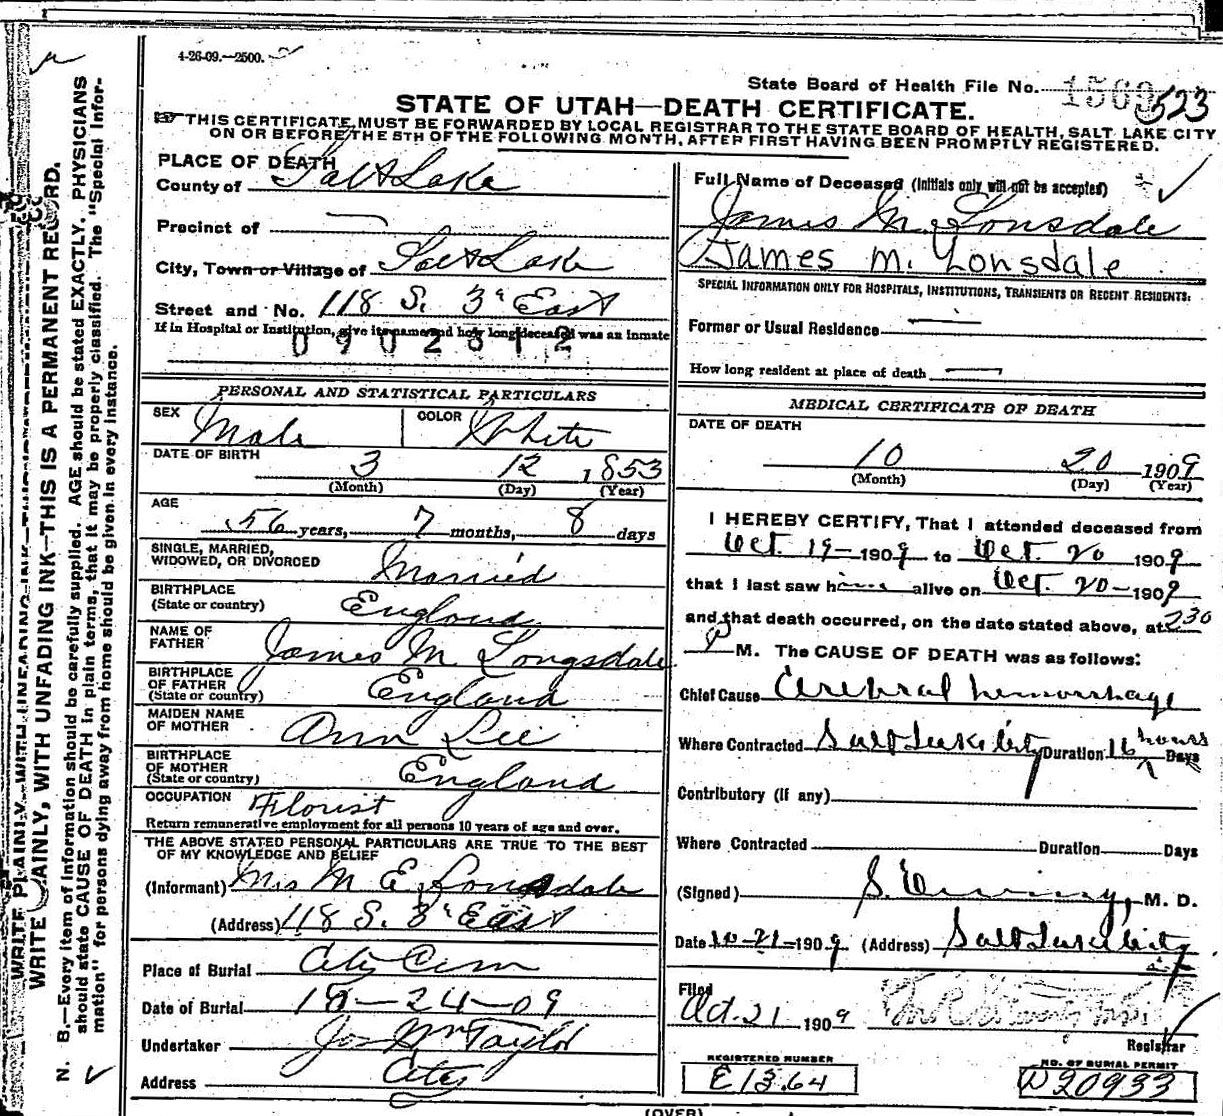 4-26-09.—2500.
State Board of Health File No. 1569 523
STATE OF UTAH—DEATH CERTIFICATE.
THIS CERTIFICATE MUST BE FORWARDED BY LOCAL REGISTRAR TO THE STATE BOARD OF HEALTH, SALT LAKE CITY
ON OR BEFORE THE 5TH OF THE FOLLOWING MONTH, AFTER FIRST HAVING BEEN PROMPTLY REGISTERED.
PLACE OF DEATH
County of Salt Lake
Precinct of
City, Town or Village of Salt Lake
Street and No. 118 S. 3d East
If in Hospital or Institution, give its name and how long deceased was an inmate
0902312
PERSONAL AND STATISTICAL PARTICULARS
SEX Male COLOR White
DATE OF BIRTH 3 12 1853
(Month) (Day) (Year)
AGE
56 years, 7 months, 8 days
SINGLE, MARRIED,
WIDOWED, OR DIVORCED Married
BIRTHPLACE
(State or country) England
NAME OF
FATHER James M Longsdale
BIRTHPLACE
OF FATHER
(State or country) England
MAIDEN NAME
OF MOTHER Ann Lee
BIRTHPLACE
OF MOTHER
(State or country) England
OCCUPATION Florist
Return remunerative employment for all persons 10 years of age and over.
THE ABOVE STATED PERSONAL PARTICULARS ARE TRUE TO THE BEST
OF MY KNOWLEDGE AND BELIEF
(Informant) Mrs M E Lonsdale
(Address) 118 S. 3d East
Place of Burial City Cem
Date of Burial 10-24-09
Undertaker Jos Wm Taylor
Address City
Full Name of Deceased (Initials only will not be accepted)
James M. Lonsdale
James M. Lonsdale
SPECIAL INFORMATION ONLY FOR HOSPITALS, INSTITUTIONS, TRANSIENTS OR RECENT RESIDENTS:
Former or Usual Residence
How long resident at place of death
MEDICAL CERTIFICATE OF DEATH
DATE OF DEATH
10 20 1909
(Month) (Day) (Year)
I HEREBY CERTIFY, That I attended deceased from
Oct. 19- 1909 to Oct. 20 1909
that I last saw him alive on Oct. 20- 1909
and that death occurred, on the date stated above, at 230
M. The CAUSE OF DEATH was as follows:
Chief Cause Cerebral hemorrhage
Where Contracted Salt Lake City Duration 16 hours Days
Contributory (if any)
Where Contracted Duration Days
(Signed) M. D.
Date 10-21-1909 (Address) Salt Lake City
Filed
Oct. 21 1909
Registrar
REGISTERED NUMBER
E1364
NO. OF BURIAL PERMIT
D20933
(OVER)
WRITE PLAINLY, WITH UNFADING INK—THIS IS A PERMANENT RECORD.
N. B.—Every item of information should be carefully supplied. AGE should be stated EXACTLY. PHYSICIANS
should state CAUSE OF DEATH in plain terms, that it may be properly classified. The "Special Infor-
mation" for persons dying away from home should be given in every instance.